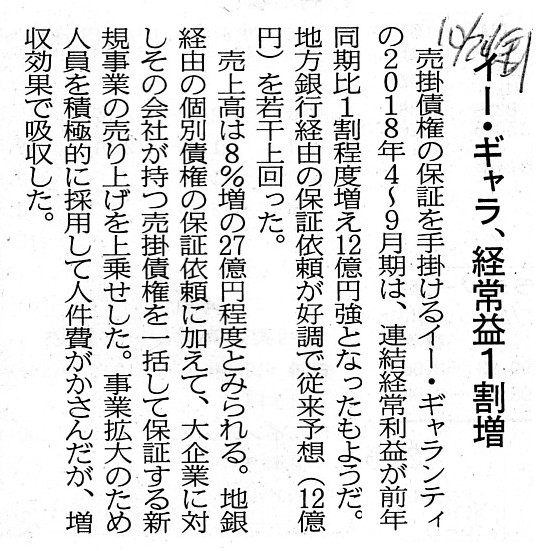 イー・ギャラ、経常益1割増
売掛債権の保証を手掛けるイー・ギャランティ
の2018年4〜9月期は、連結経常利益が前年
同期比1割程度増え12億円強となったもようだ。
地方銀行経由の保証依頼が好調で従来予想（12億
円）を若干上回った。
売上高は8％増の27億円程度とみられる。地銀
経由の個別債権の保証依頼に加えて、大企業に対
しその会社が持つ売掛債権を一括して保証する新
規事業の売り上げを上乗せした。事業拡大のため
人員を積極的に採用して人件費がかさんだが、増
収効果で吸収した。